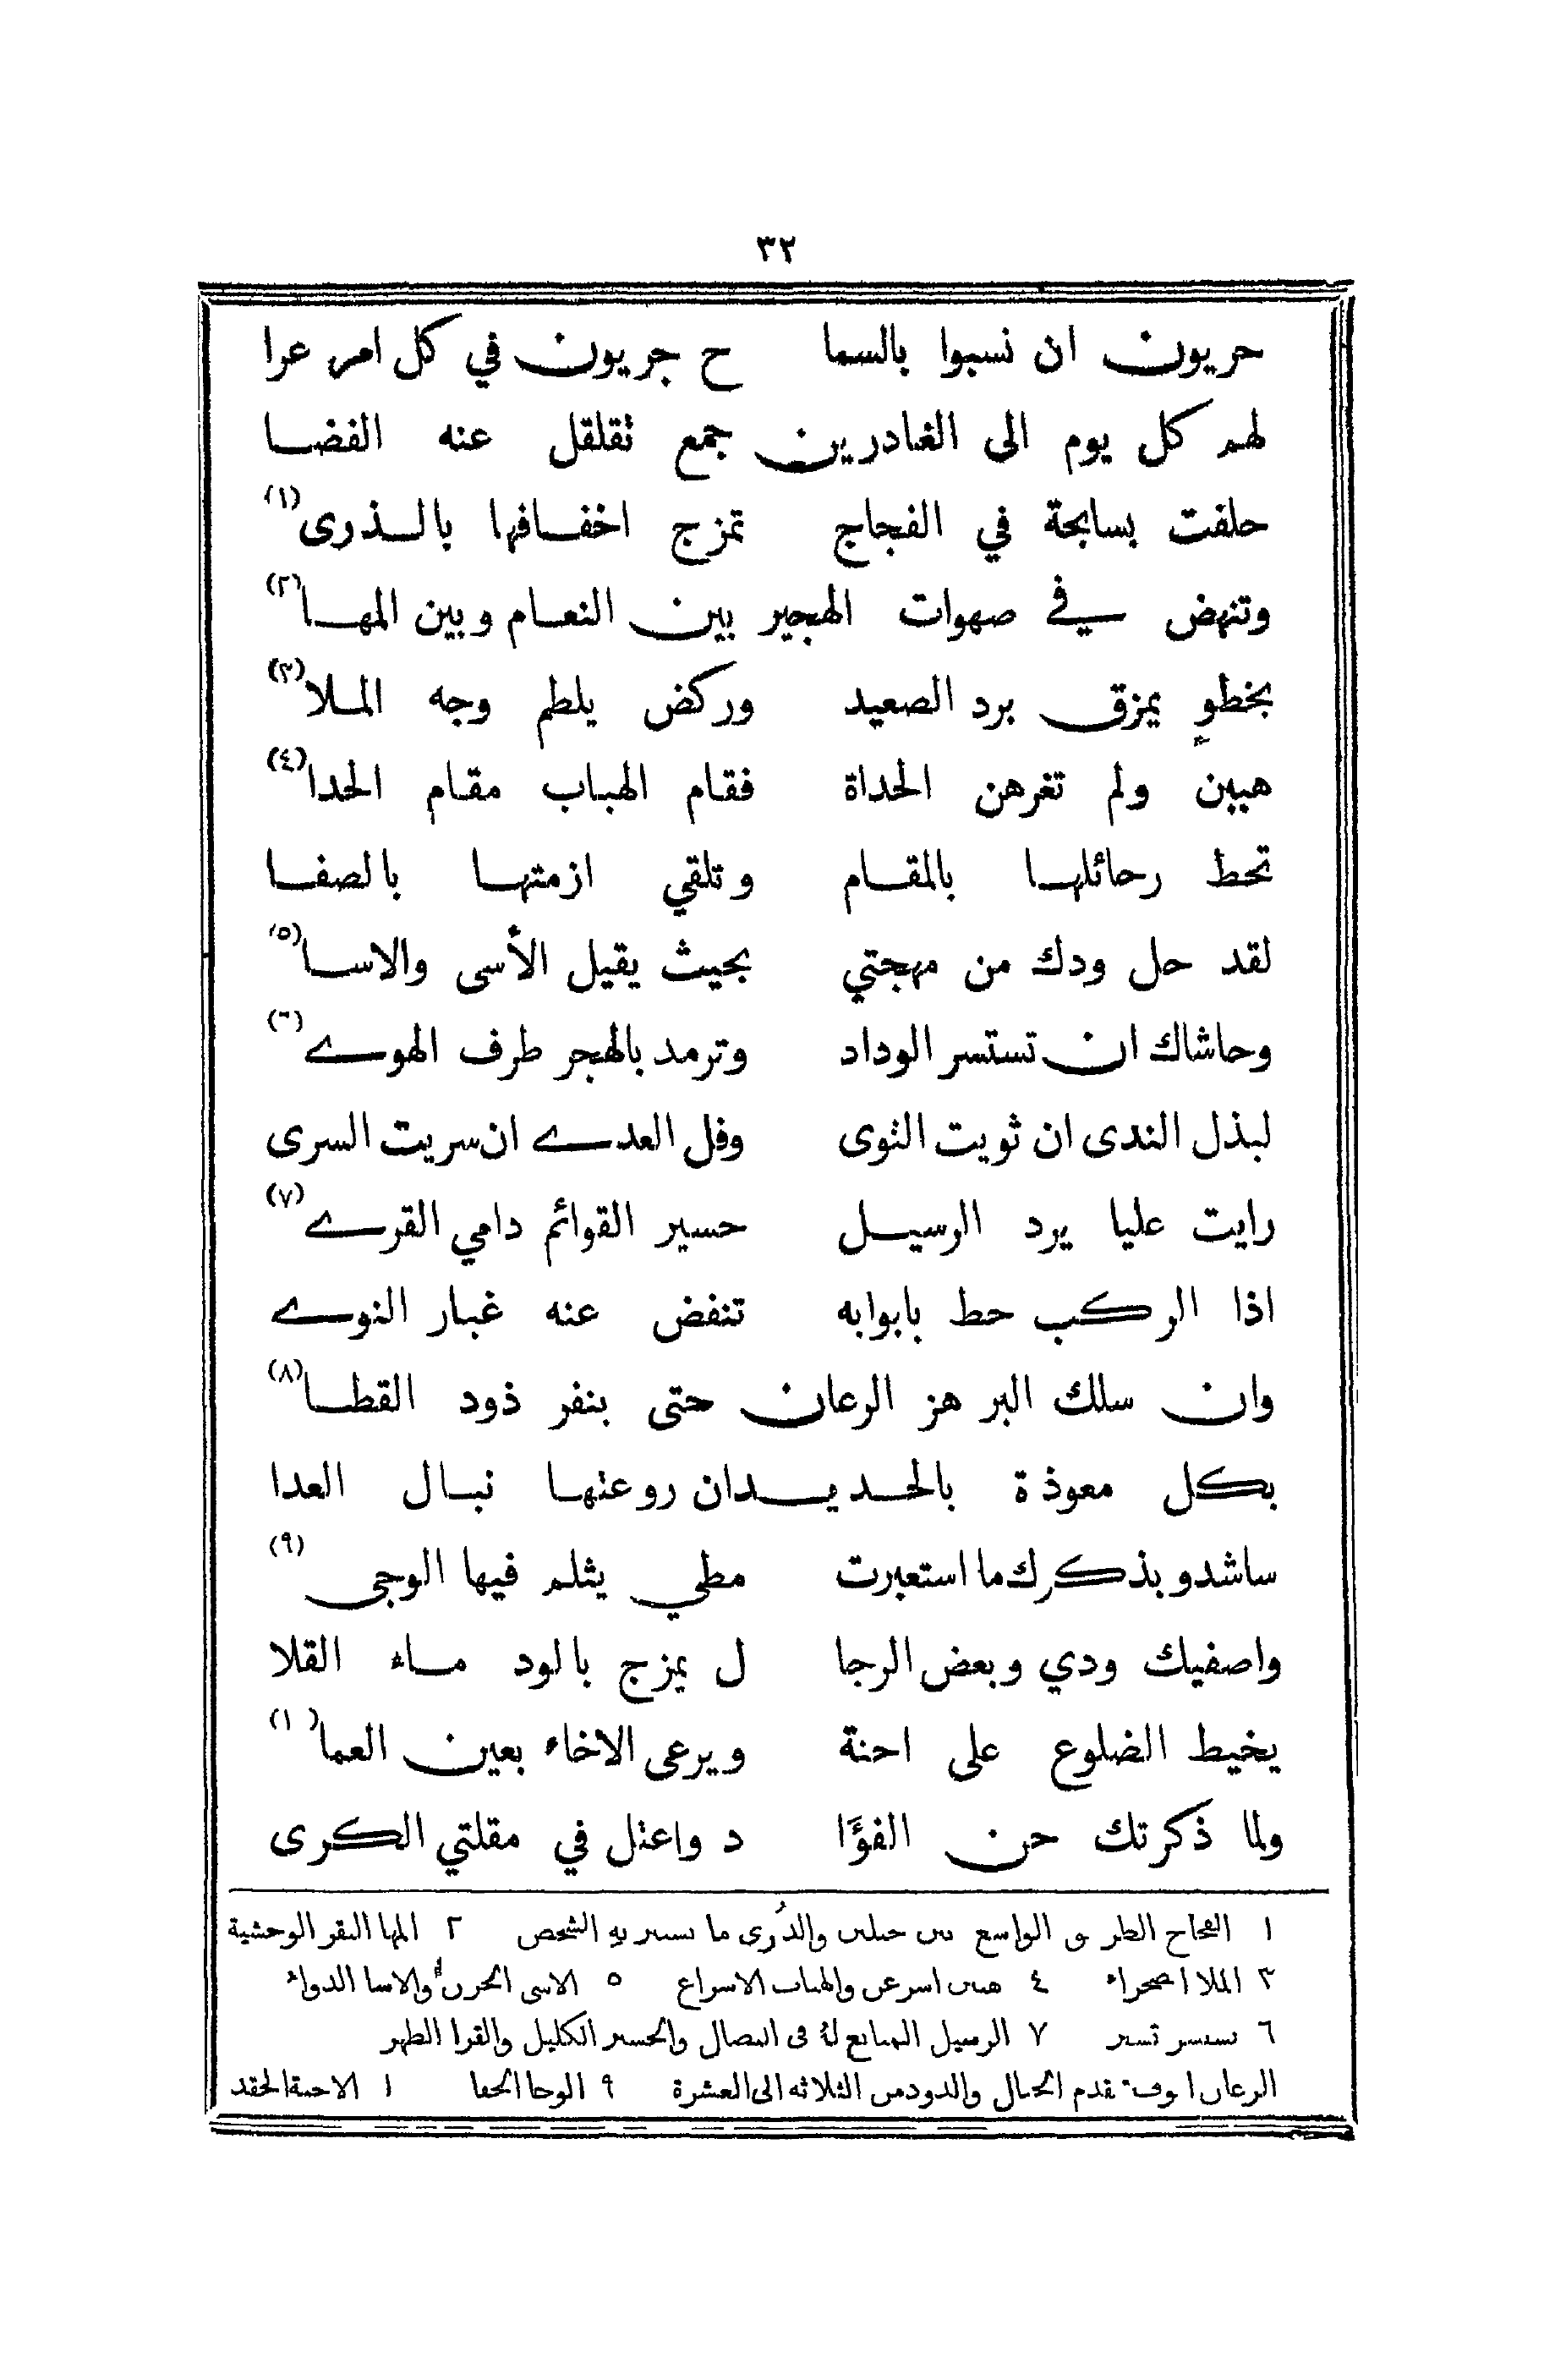 ٣٢
حريون ان نسبوا بالسما ح جريون في كل امر عرا
لهم كل يوم الى الغادرين جمع تقلقل عنه الفضا
حلفت بسابحة في الفجاج تمزج اخفافها بالذرى (١)
وتنهض في صهوات الهجير بين النعام وبين المها (٢)
بخطوٍ يمزق برد الصعيد وركض يلطم وجه الملا (٣)
هببن ولم تغرهن الحداة فقام الهباب مقام الحدا (٤)
تحط رحائلها بالمقام وتلقي ازمتها بالصفا
لقد حل ودك من مهجتي بحيث يقيل الأسى والاسا (٥)
وحاشاك ان تستسر الوداد وترمد بالهجر طرف الهوے (٦)
لبذل الندى ان ثويت الثوى وفل العدے ان سريت السرى
رايت عليا يرد الرسيل حسير القوائم دامي القرے (٧)
اذا الركب حط بابوابه تنفض عنه غبار النوے
وان سلك البر هز الرعان حتى بنفر ذود القطا (٨)
بكل معوذة بالحديدان روعتها نبال العدا
ساشدو بذكرك ما استعبرت مطي يثلم فيها الوجى (٩)
واصفيك ودي وبعض الرجا ل يمزج بالود ماء القلا
يخيط الضلوع على احنة ويرعى الاخاء بعين العما (١)
ولما ذكرتك حن الفؤَا د واعتل في مقلتي الكرى
١ الفجاج الطرق الواسع بين جبلين والذُرى ما يستتر به الشخص ٢ المها البقر الوحشية
٣ الملا الصحراء ٤ هببن اسرعن والهباب الاسراع ٥ الاسى الحزن والاسا الدواء
٦ تستسر تستتر ٧ الرسيل المتابع لهُ في النضال والحسير الكليل والقرا الظهر
الرعان انوف تقدم الجبال والذود من الثلاثة الى العشرة ٩ الوجا الحفا ١ الاحنة الحقد